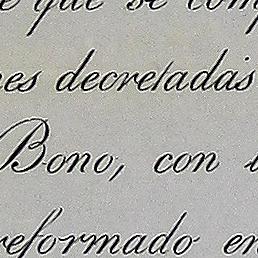 que se
nes decretadas
Bono, con
reformado en